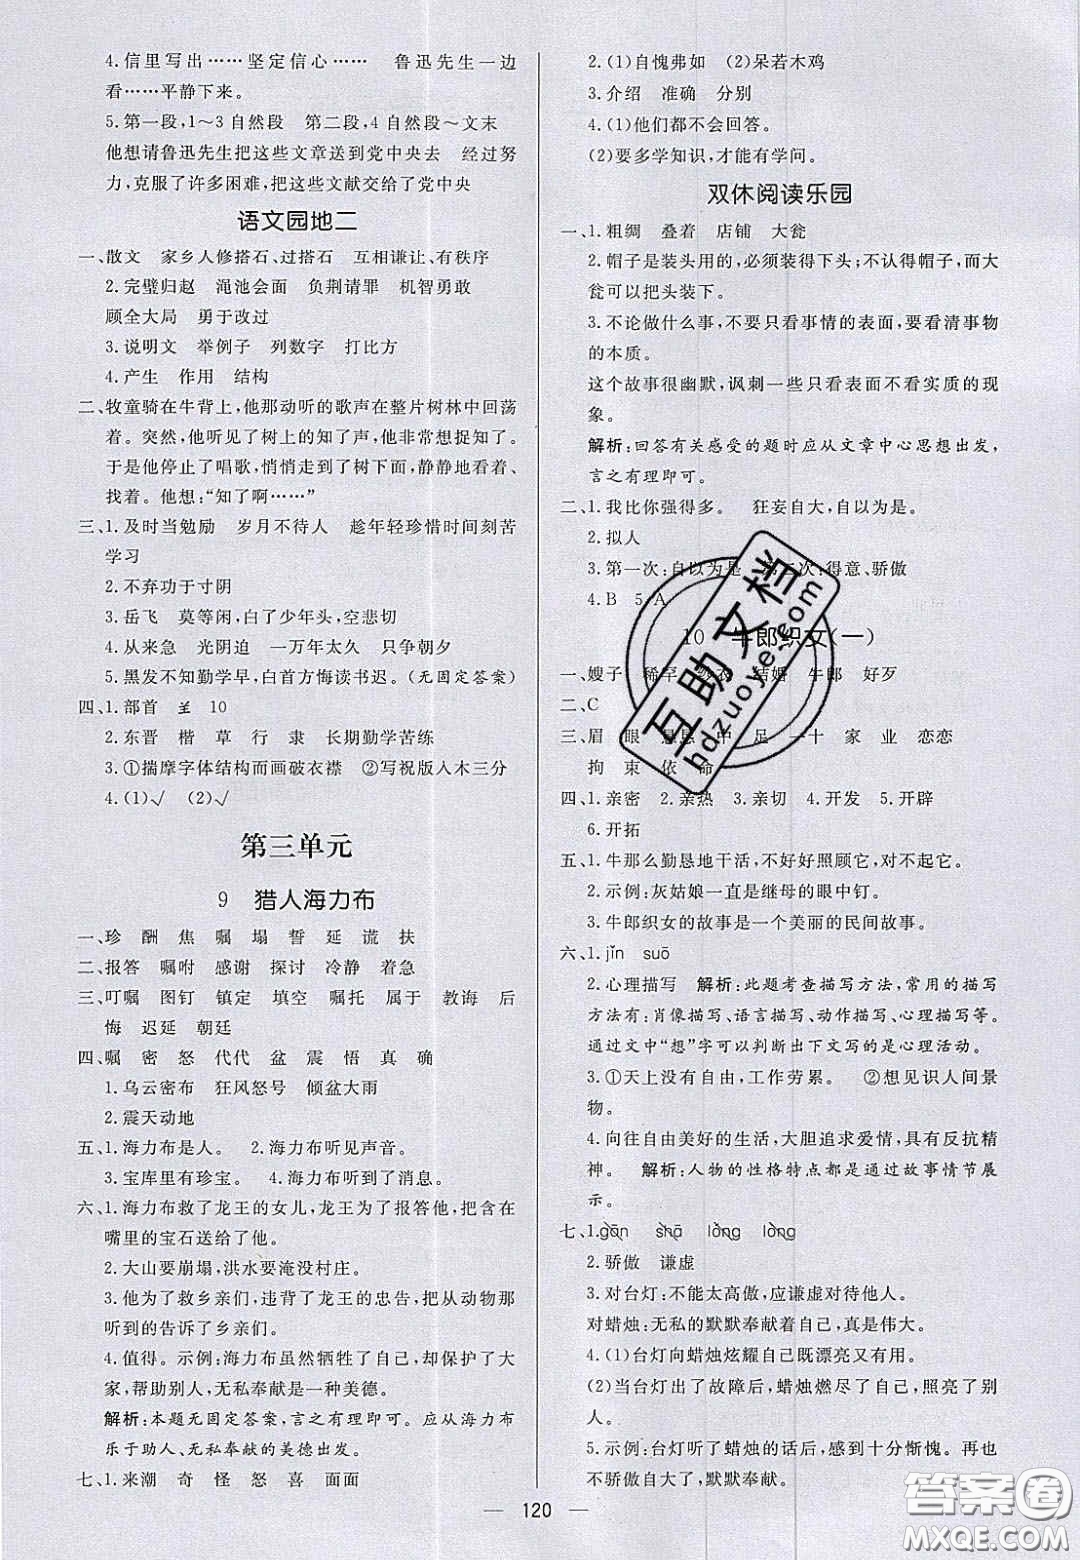 4.信里写出……坚定信心…… 鲁迅先生一边
看……平静下来。
5.第一段,1～3自然段 第二段,4自然段～文末
他想请鲁迅先生把这些文章送到党中央去 经过努
力,克服了许多困难,把这些文献交给了党中央
语文园地二
一、散文 家乡人修搭石、过搭石 互相谦让、有秩序
2.完璧归赵 渑池会面 负荆请罪 机智勇敢
顾全大局 勇于改过
3.说明文 举例子 列数字 打比方
4.产生 作用 结构
二、牧童骑在牛背上,他那动听的歌声在整片树林中回荡
着。突然,他听见了树上的知了声,他非常想捉知了。
于是他停止了唱歌,悄悄走到了树下面,静静地看着、
找着。他想:“知了啊……”
三、1.及时当勉励 岁月不待人 趁年轻珍惜时间刻苦
学习
2.不弃功于寸阴
3.岳飞 莫等闲,白了少年头,空悲切
4.从来急 光阴迫 一万年太久 只争朝夕
5.黑发不知勤学早,白首方悔读书迟。(无固定答案)
四、1.部首 𦍌 10
2.东晋 楷 草 行 隶 长期勤学苦练
3.①揣摩字体结构而画破衣襟 ②写祝版入木三分
4.(1)√ (2)√
第三单元
9 猎人海力布
一、珍 酬 焦 嘱 塌 誓 延 谎 扶
二、报答 嘱咐 感谢 探讨 冷静 着急
三、叮嘱 图钉 镇定 填空 嘱托 属于 教诲 后
悔 迟延 朝廷
四、嘱 密 怒 代代 盆 震 悟 真 确
1.乌云密布 狂风怒号 倾盆大雨
2.震天动地
五、1.海力布是人。 2.海力布听见声音。
3.宝库里有珍宝。 4.海力布听到了消息。
六、1.海力布救了龙王的女儿,龙王为了报答他,把含在
嘴里的宝石送给了他。
2.大山要崩塌,洪水要淹没村庄。
3.他为了救乡亲们,违背了龙王的忠告,把从动物那
听到的告诉了乡亲们。
4.值得。示例:海力布虽然牺牲了自己,却救了大
家,帮助别人,无私奉献是一种美德。
解析:本题无固定答案,言之有理即可。应从海力布
乐于助人、无私奉献的美德出发。
七、1.来潮 奇 怪 怒 喜 面面
2.(1)自愧弗如 (2)呆若木鸡
3.介绍 准确 分别
4.(1)他们都不会回答。
(2)要多学知识,才能有学问。
双休阅读乐园
一、1.粗绸 叠着 店铺 大瓮
2.帽子是装头用的,必须装得下头;不认得帽子,而大
瓮可以把头装下。
3.不论做什么事,不要只看事情的表面,要看清事物
的本质。
这个故事很幽默,讽刺一些只看表面不看实质的现
象。
解析:回答有关感受的题时应从文章中心思想出发,
言之有理即可。
二、1.我比你强得多。 狂妄自大,自以为是。
2.拟人
3.第一次:自以为是 第二次:得意、骄傲
4.B 5.A
10 牛郎织女(一)
一、嫂子 稀罕 纱衣 结婚 牛郎 好歹
二、C
三、眉 眼 恳恳 中 足 一十 家 业 恋恋
拘 束 依 命
四、1.亲密 2.亲热 3.亲切 4.开发 5.开辟
6.开拓
五、1.牛那么勤恳地干活,不好好照顾它,对不起它。
2.示例:灰姑娘一直是继母的眼中钉。
3.牛郎织女的故事是一个美丽的民间故事。
六、1.jǐn suō
2.心理描写 解析:此题考查描写方法,常用的描写
方法有:肖像描写、语言描写、动作描写、心理描写等。
通过文中“想”字可以判断出下文写的是心理活动。
3.①天上没有自由,工作劳累。 ②想见识人间景
物。
4.向往自由美好的生活,大胆追求爱情,具有反抗精
神。 解析:人物的性格特点都是通过故事情节展
示。
七、1.gān shā lòng lòng
2.骄傲 谦虚
3.对台灯:不能太高傲,应谦虚对待他人。
对蜡烛:无私的默默奉献着自己,真是伟大。
4.(1)台灯向蜡烛炫耀自己既漂亮又有用。
(2)当台灯出了故障后,蜡烛燃尽了自己,照亮了别
人。
5.示例:台灯听了蜡烛的话后,感到十分惭愧。再也
不骄傲自大了,默默奉献。
120
互助文档
hdzuoye.com
答案圈
MXQE.COM